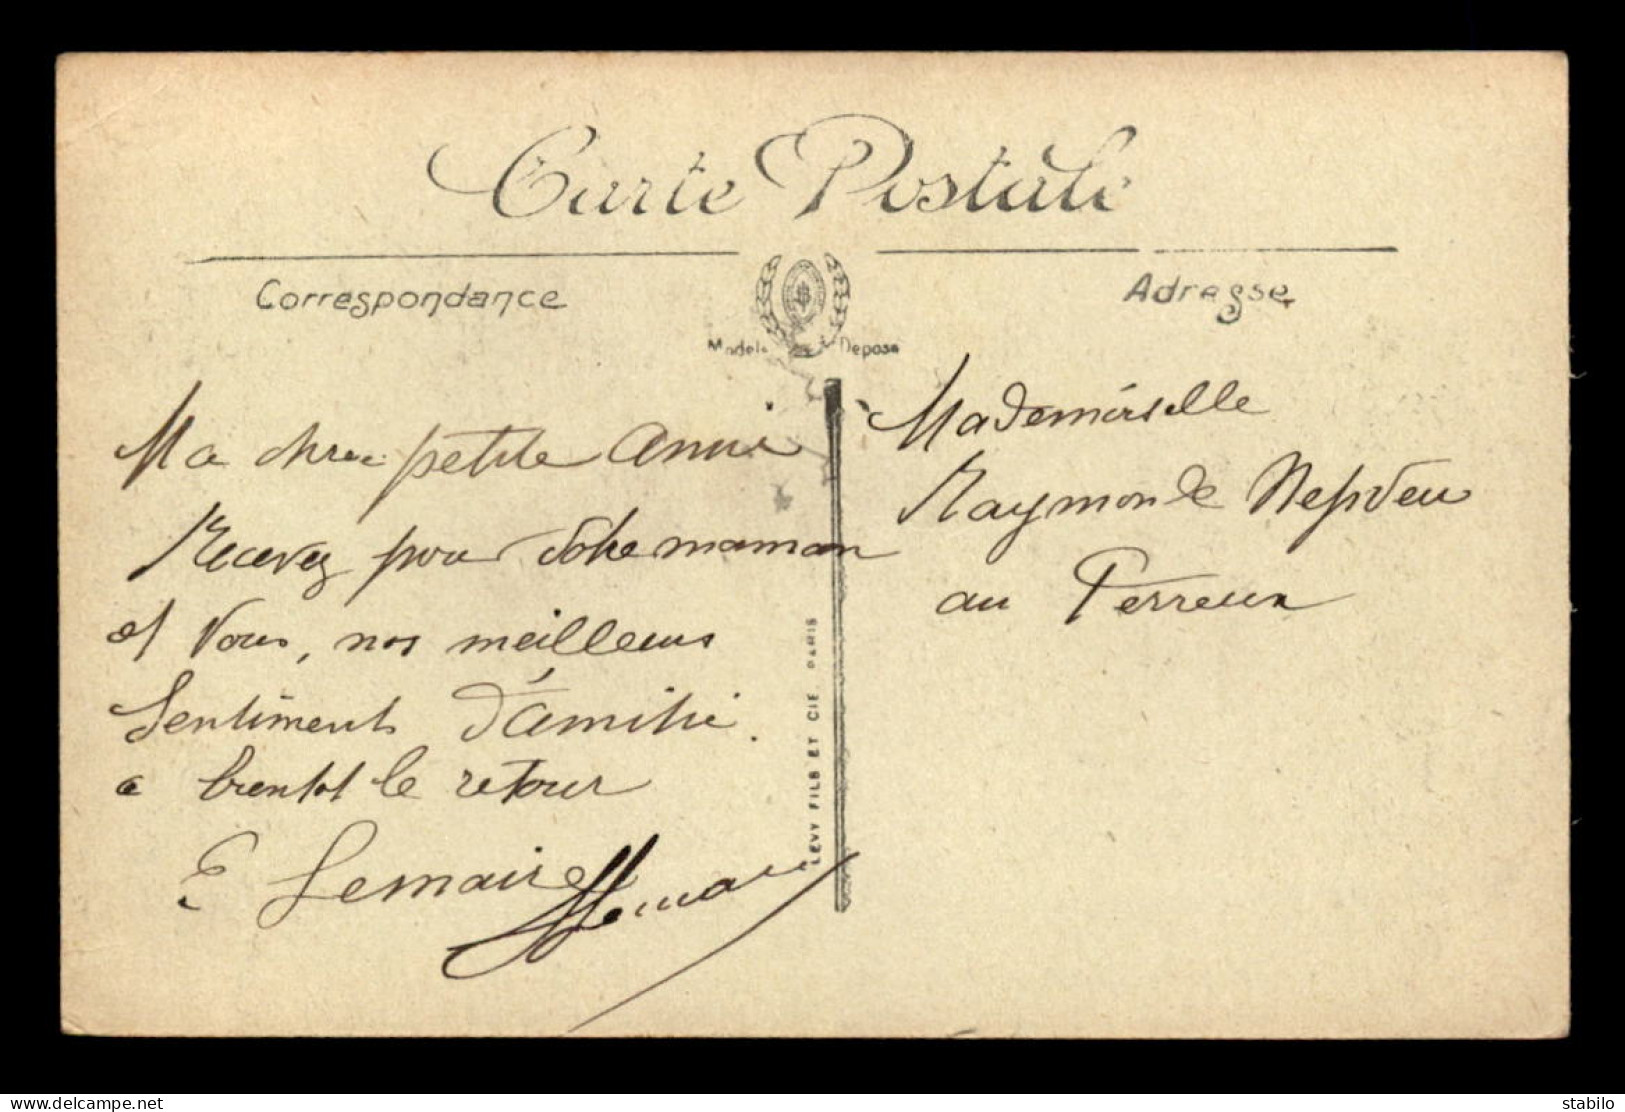 Carte Postale
Correspondance
Adresse
Modele Depose
Ma chere petite amie
Recevez pour votre maman
et vous, nos meilleurs
Sentiments d'amitié.
a bientot le retour
E Lemaire
LEVY FILS ET CIE PARIS
Mademoiselle
Raymonde Nepveu
au Perreux
delcampe.net
stabilo